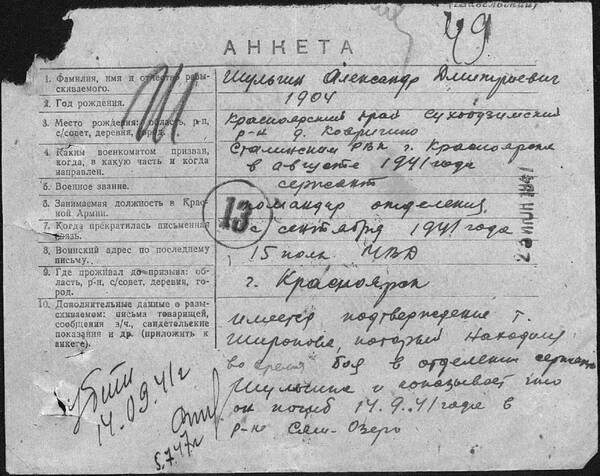 49
АНКЕТА
1. Фамилия, имя и отчество разы-
скиваемого.
Шульгин Александр Дмитриевич
2. Год рождения.
1904
3. Место рождения: область, р-н,
с/совет, деревня, город.
Красноярский край Сухобузимский
р-н д. Ковригино
4. Каким военкоматом призван,
когда, в какую часть и когда
направлен.
Сталинском РВК г. Красноярска
в августе 1941 года
5. Военное звание.
сержант
6. Занимаемая должность в Крас-
ной Армии.
командир отделения
7. Когда прекратилась письменная
связь.
с сентября 1941 года
8. Воинский адрес по последнему
письму.
15 полк НКВД
9. Где проживал до призыва: об-
ласть, р-н, с/совет, деревня, го-
род.
г. Красноярск
10. Дополнительные данные о разы-
скиваемом: письма товарищей,
сообщения з/ч., свидетельские
показания и др. (приложить к
анкете).
имеется подтверждение т.
Широкова, который находился
во время боя в отделении сержанта
Шульгина и показывает что
он погиб 14.9.41 года в
р-не Сям-Озеро
Ш
13
2 ИЮН 1947
Убит
14.09.41г
5.7.47г